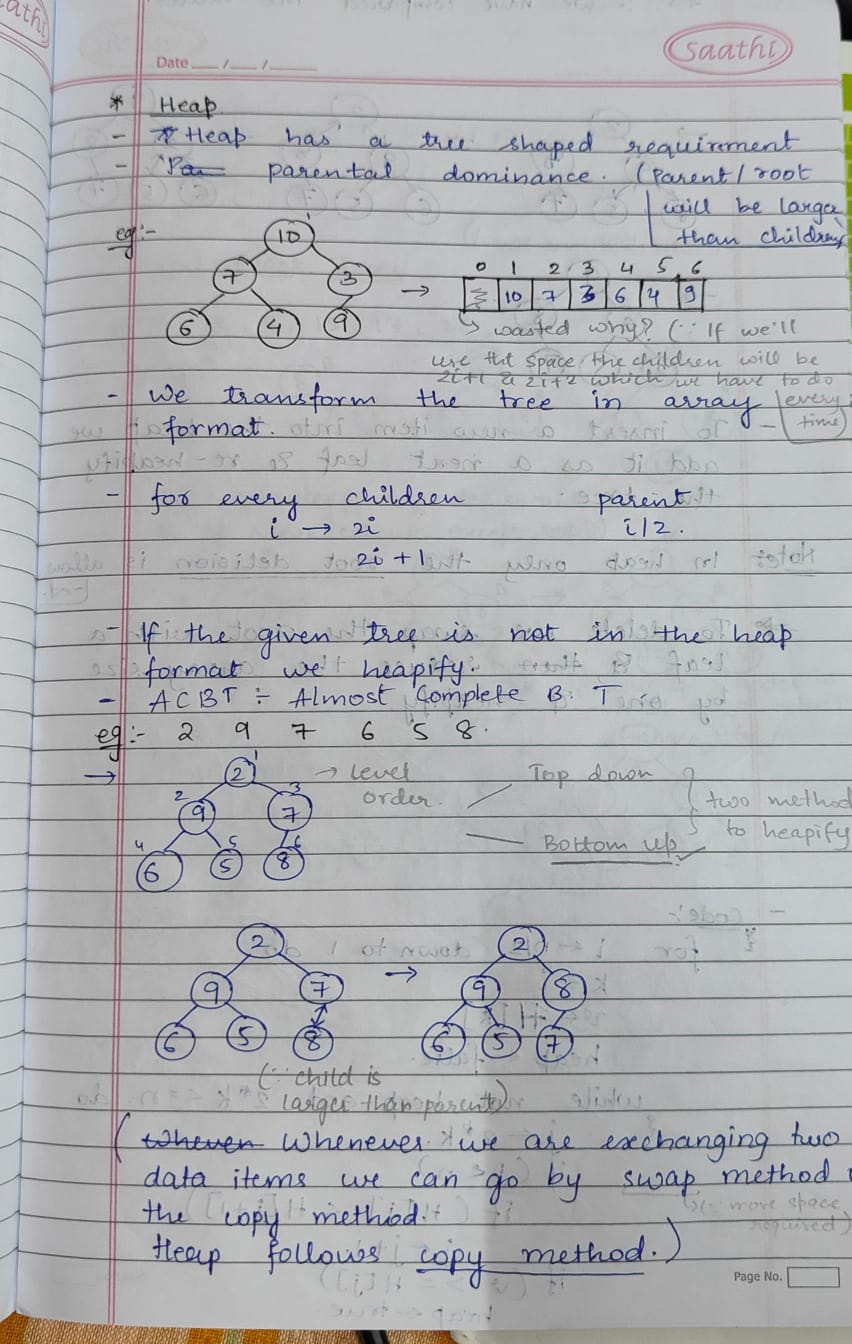 saathi
Date ___/___/______
* Heap.
- Heap has a tree shaped requirement
- parental dominance. (Parent / root
will be large
than children
eg:-
10
7 3
6 4 9
→
0 1 2 3 4 5 6
10 7 3 6 4 9
↳ wasted why? (∵ If we'll
use tht space, the children will be
2i+1 & 2i+2 which we have to do
every
time)
- We transform the tree in array
format.
- for every children parent
i → 2i i/2.
2i + 1
- If the given tree is not in the heap
format we heapify.
- ACBT ÷ Almost Complete B. T
eg:- 2 9 7 6 5 8.
→
1
2
→ level
order
2 3
9 7
4 5 6
6 5 8
Top down
Bottom up
two method
to heapify
2 → 2
9 7 9 8
6 5 8 6 5 7
(∵ child is
larger than parent)
(Wheven Whenever we are exchanging two
data items we can go by swap method
the copy method.
(∵ more space
required)
Heap follows copy method.)
Page No.